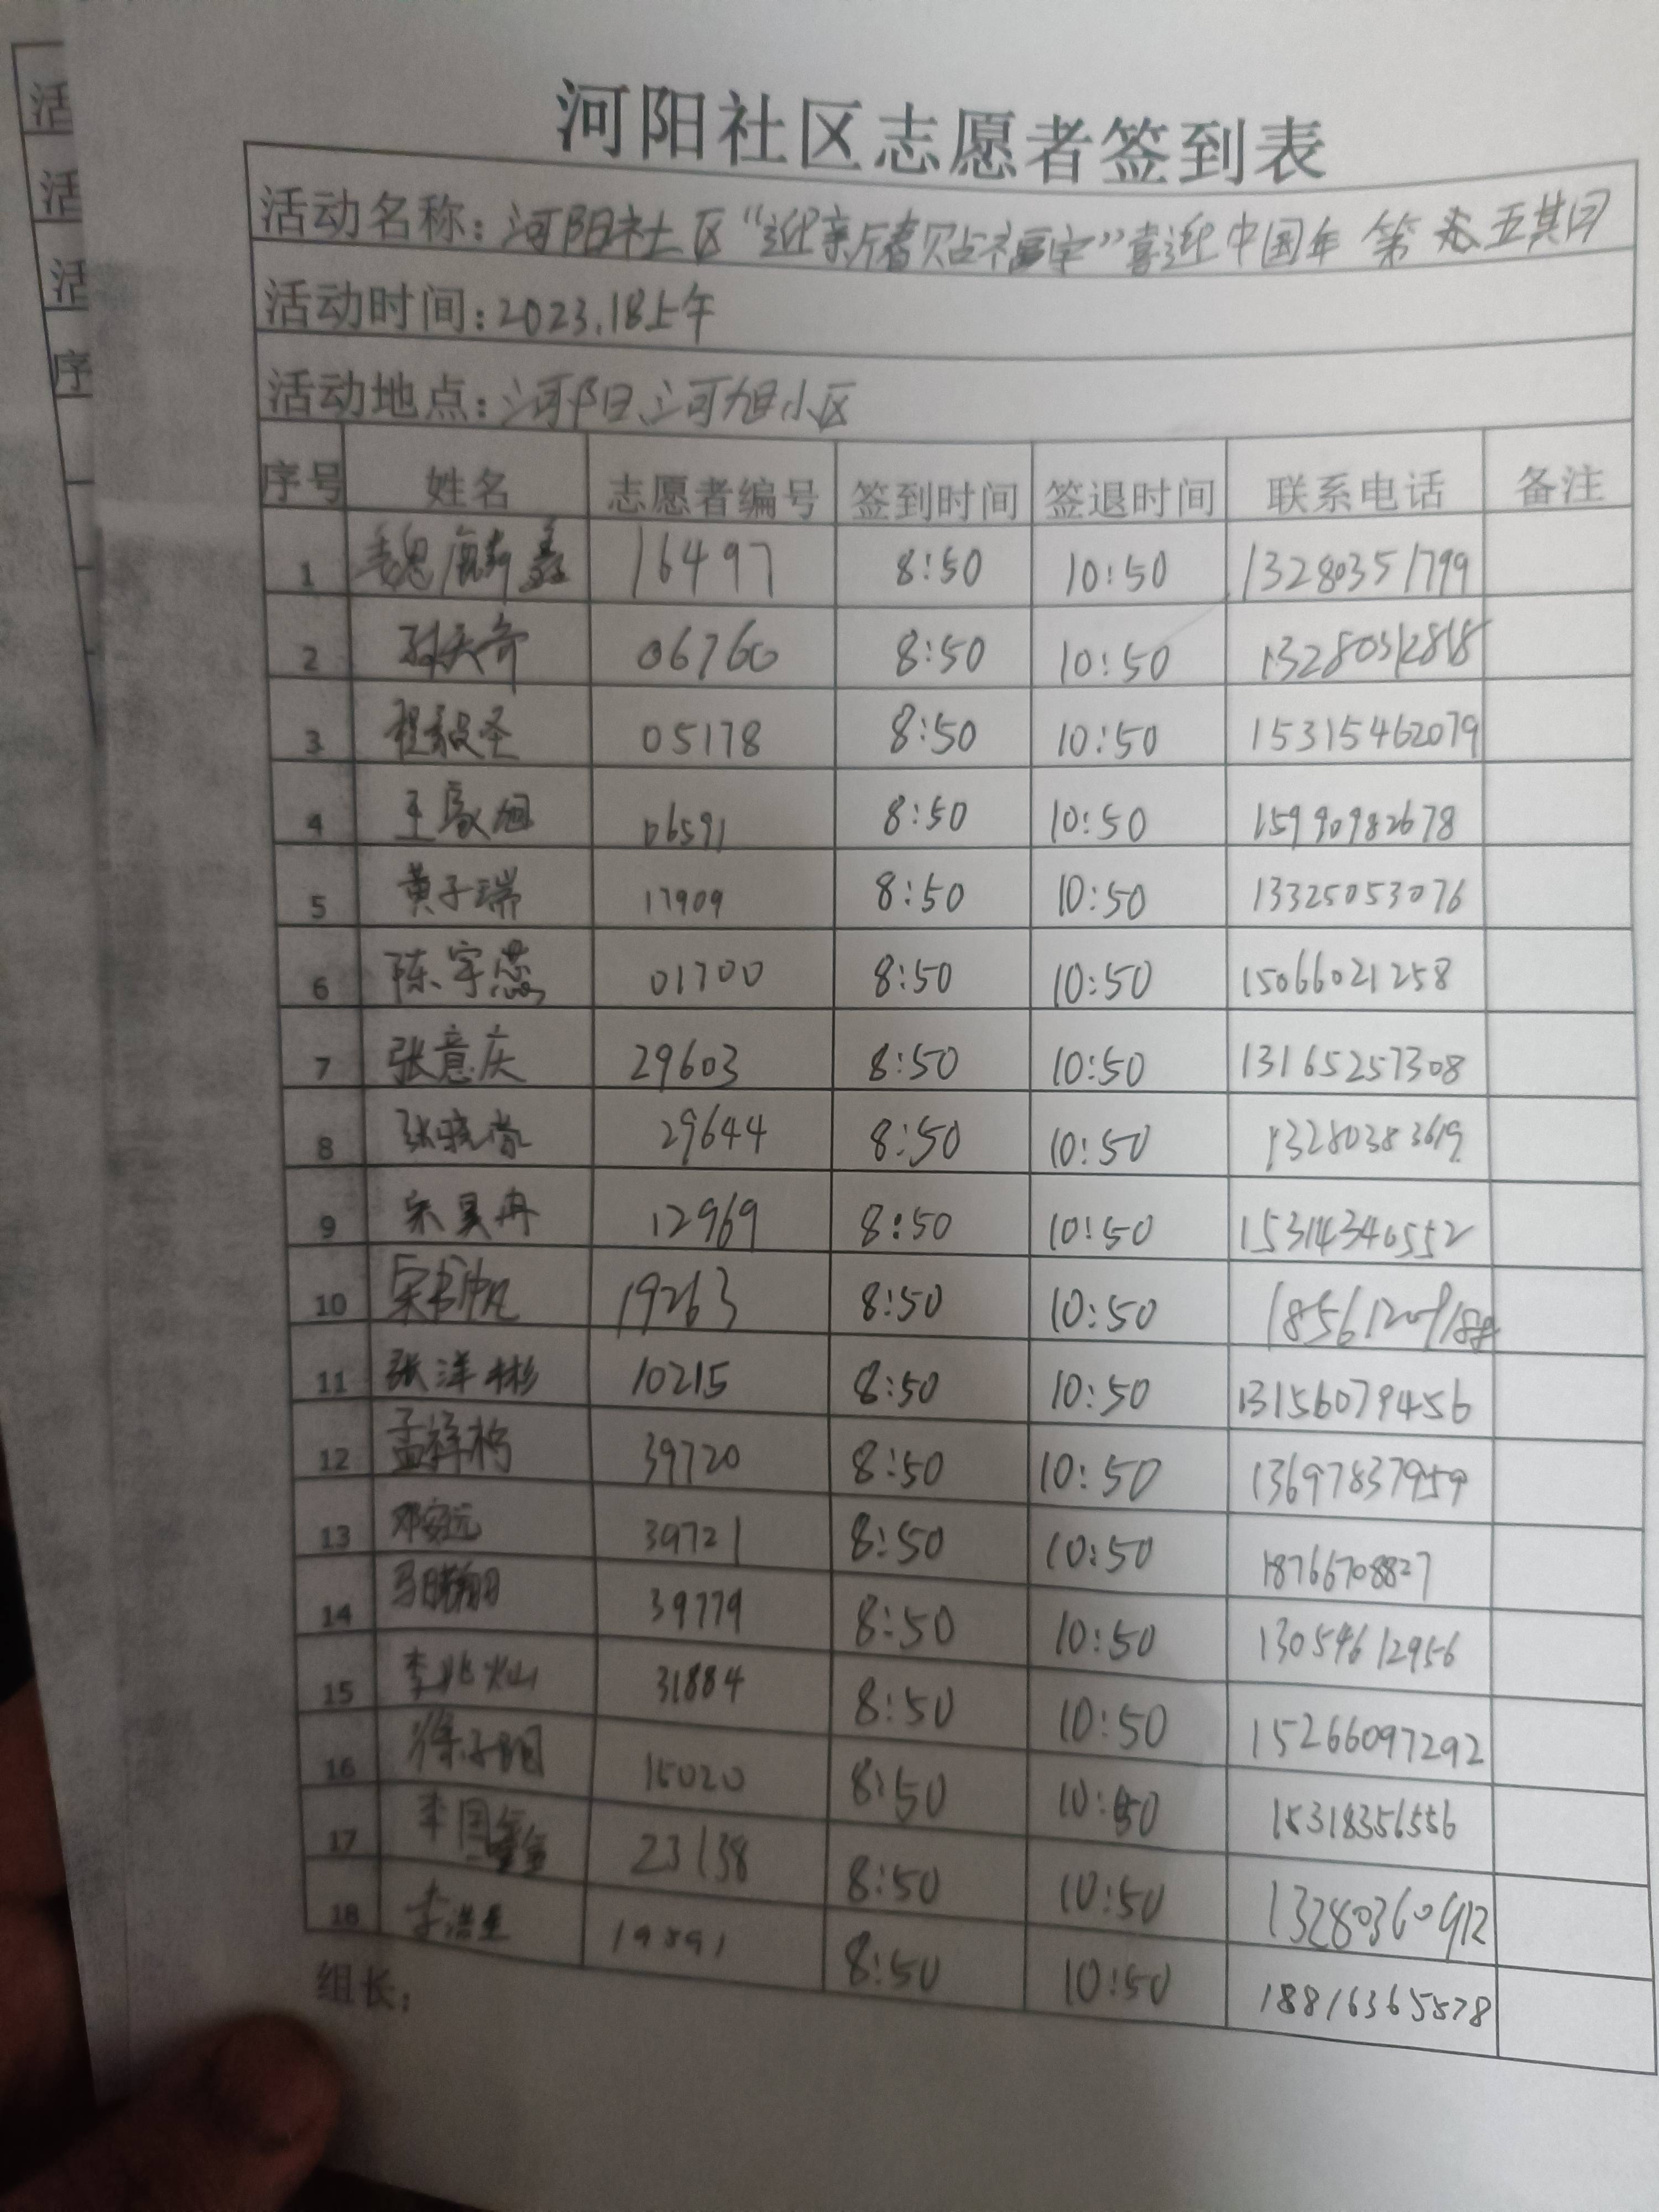 活
活
活
序
河阳社区志愿者签到表
活动名称：河阳社区“迎新春贴福字”喜迎中国年 第 五期
活动时间：2023.18上午
活动地点：河阳、河旭小区
序号 姓名 志愿者编号 签到时间 签退时间 联系电话 备注
1 魏 鑫 16497 8:50 10:50 13280351799
2 天奇 06760 8:50 10:50
3 程毅圣 05178 8:50 10:50 15315462079
4 王 旭 06591 8:50 10:50 15990982678
5 黄子瑞 17909 8:50 10:50 13325053076
6 陈宇蕊 01700 8:50 10:50 15066021258
7 张意庆 29603 8:50 10:50 13165257308
8 张晓 29644 8:50 10:50 13280383619
9 宋昊冉 12969 8:50 10:50 15314340552
10 宋书帆 19263 8:50 10:50
11 张洋彬 10215 8:50 10:50 13156079456
12 孟祥 39720 8:50 10:50 13697837959
13 邓安远 39721 8:50 10:50 18766708827
14 马 翔 39779 8:50 10:50 13054612956
15 李兆灿 31884 8:50 10:50 15266097292
16 徐子 15020 8:50 10:50 15318356556
17 李国鑫 23138 8:50 10:50 13280360912
18 李浩 8:50 10:50 18816365578
组长：